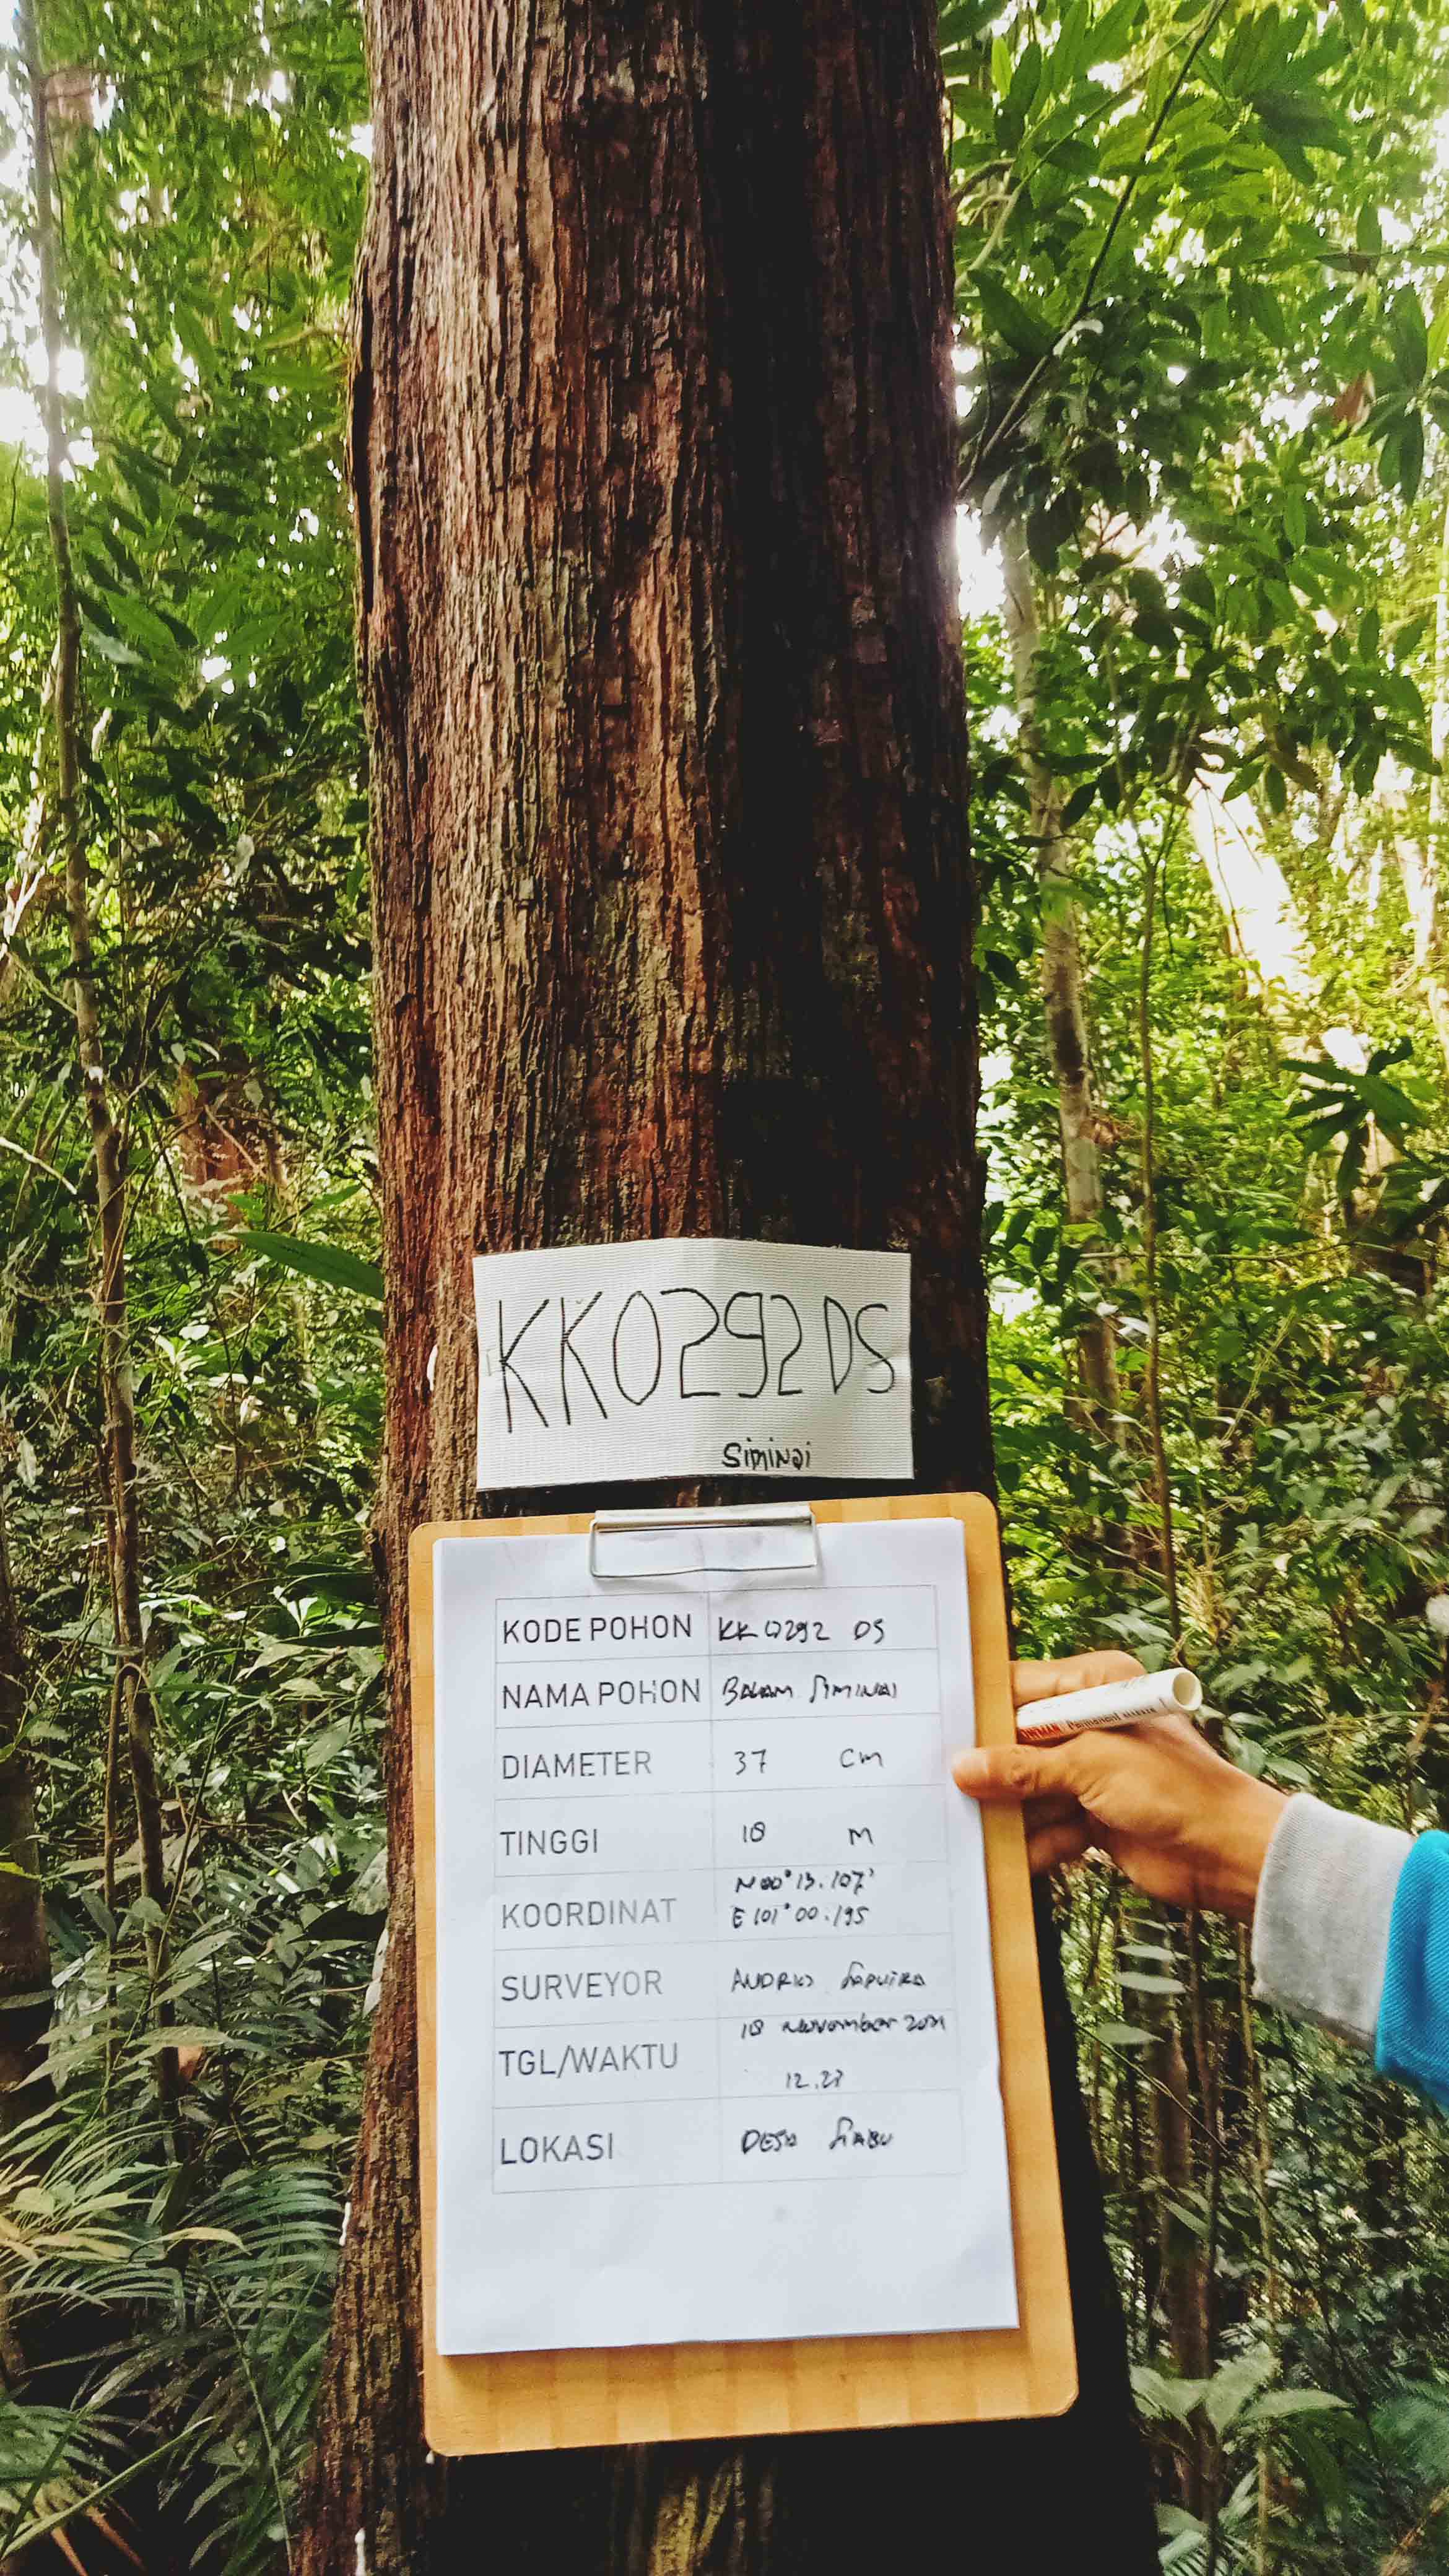 KK0292DS
Siminai
KODE POHON KK 0292 DS
NAMA POHON BALAM SIMINAI
DIAMETER 37 cm
TINGGI 18 M
KOORDINAT N 00° 13.107'
E 101° 00.195
SURVEYOR ANDRIO SAPUTRA
TGL/WAKTU 18 November 2021
12.23
LOKASI DESA SIABU
Permanent